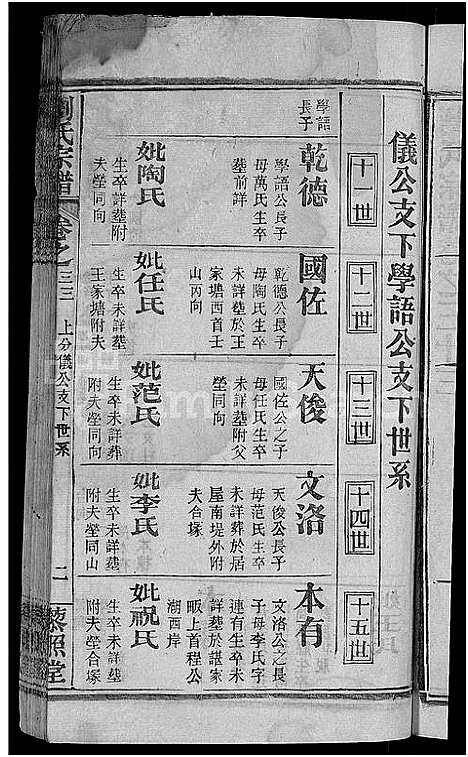 儀公支下學語公支下世系
十一世
十二世
十三世
十四世
十五世
學語
長子
乾德
學語公長子
母萬氏生卒
塟前詳
妣陶氏
生卒詳塟附
夫塋同向
國佐
乾德公長子
母陶氏生卒
未詳塟於王
家塘西首壬
山丙向
妣任氏
生卒未詳塟
王家塘附夫
天俊
國佐公之子
母任氏生卒
未詳塟附父
塋同向
妣范氏
生卒未詳葬
附夫塋同向
文洛
天俊公長子
母范氏生卒
未詳葬於居
屋南堤外附
夫合塚
妣李氏
生卒未詳塟
附夫塋同山
本有
文洛公之長
子母李氏字
連有生卒未
詳塟於諶家
畈上首程公
湖西岸
妣祝氏
生卒未詳塟
附夫塋合塚
劉氏宗譜
卷之三三
上分儀公支下世系
二
藜照堂